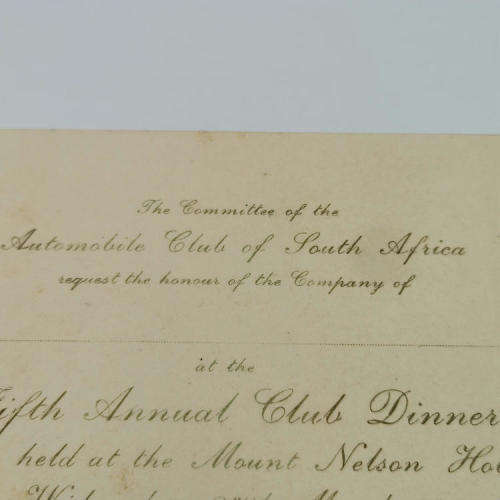 The Committee of the
Automobile Club of South Africa
request the honour of the Company of
at the
Fifth Annual Club Dinner
held at the Mount Nelson